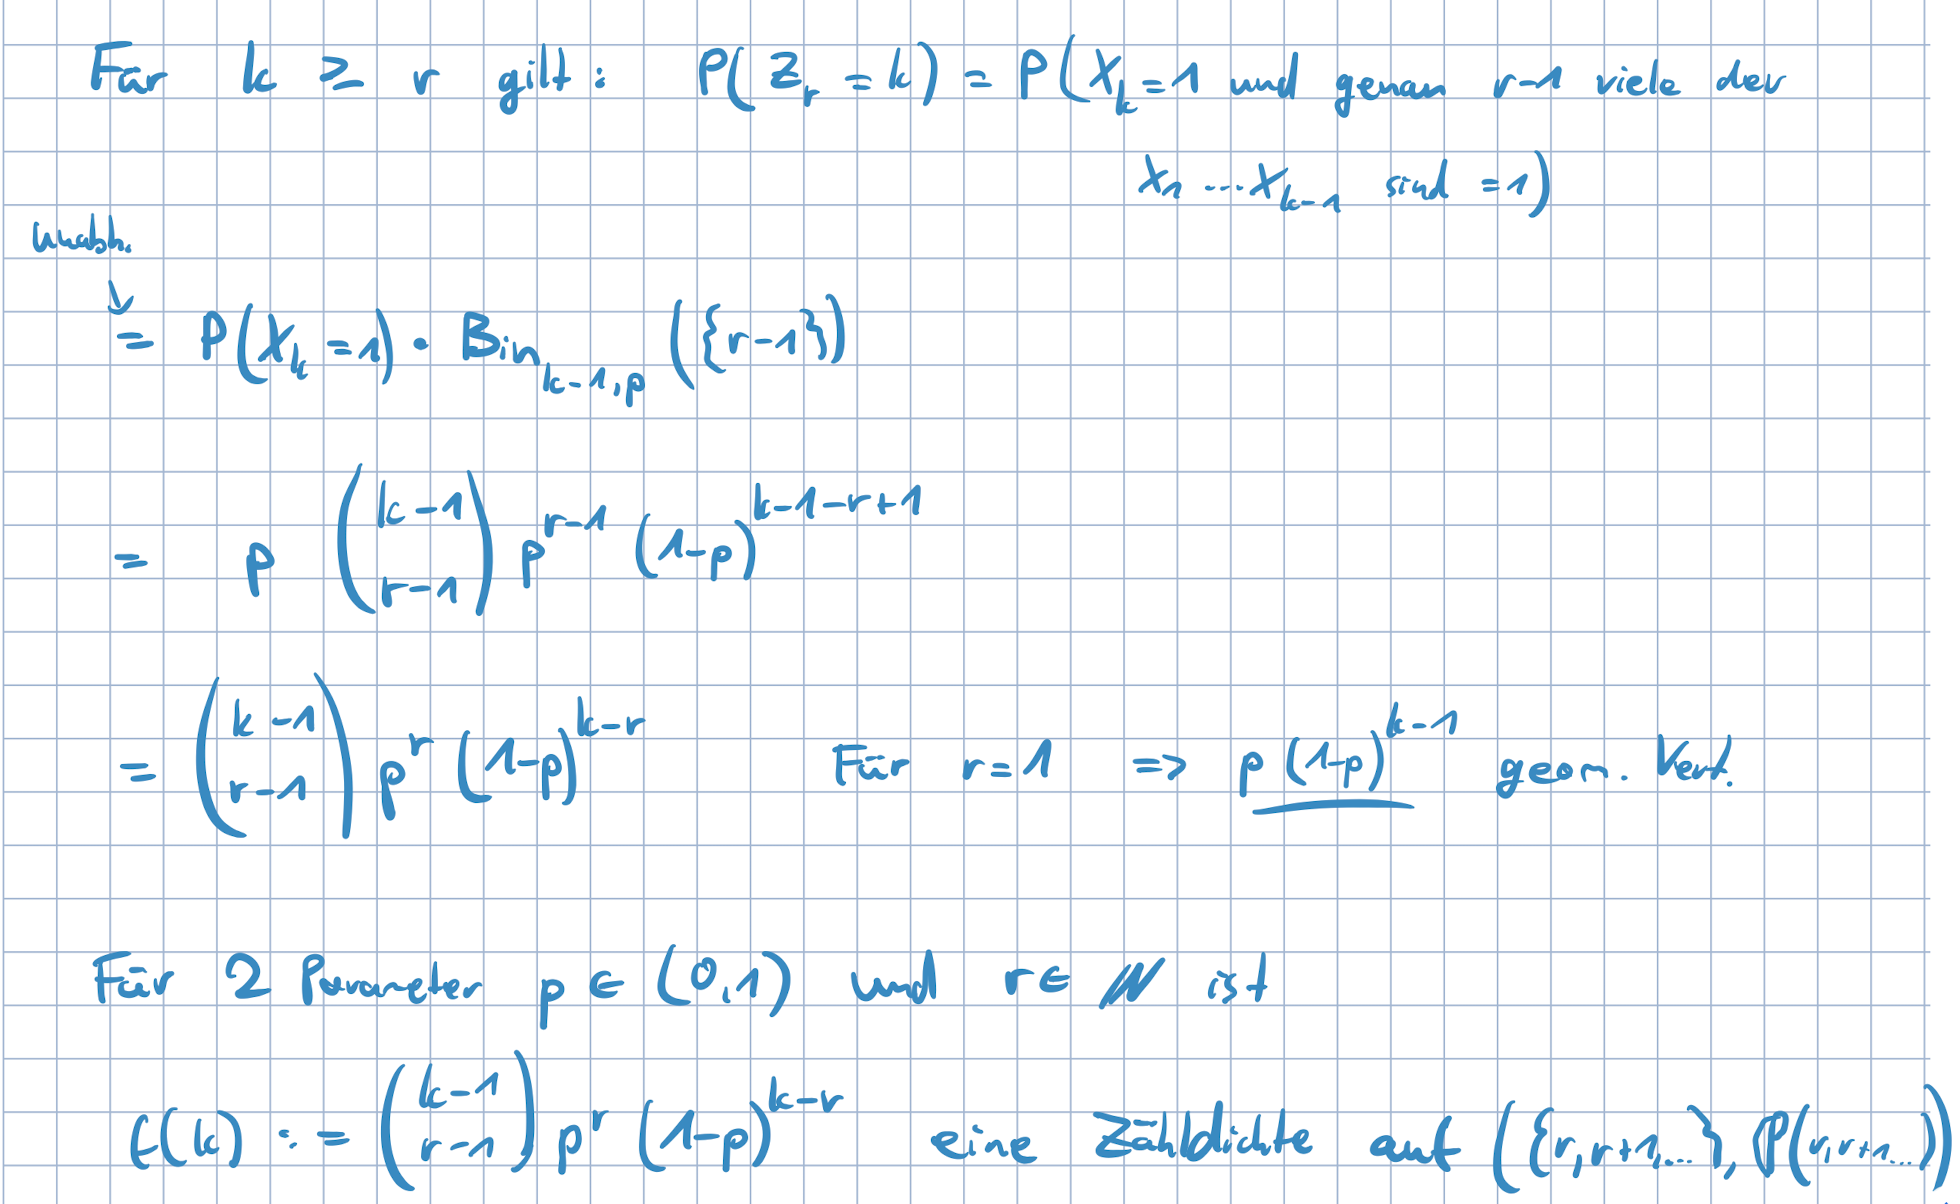 Für k ≥ r gilt: P(Z_r = k) = P(X_k = 1 und genau r-1 viele der
X_1 ... X_{k-1} sind = 1)
unabh.
↓
= P(X_k = 1) · Bin_{k-1,p} ({r-1})
= p \binom{k-1}{r-1} p^{r-1} (1-p)^{k-1-r+1}
= \binom{k-1}{r-1} p^r (1-p)^{k-r} Für r = 1 => p (1-p)^{k-1} geom. Vert.
Für 2 Parameter p ∈ (0,1) und r ∈ ℕ ist
f(k) := \binom{k-1}{r-1} p^r (1-p)^{k-r} eine Zähldichte auf ({r, r+1, ...}, P(r, r+1...))